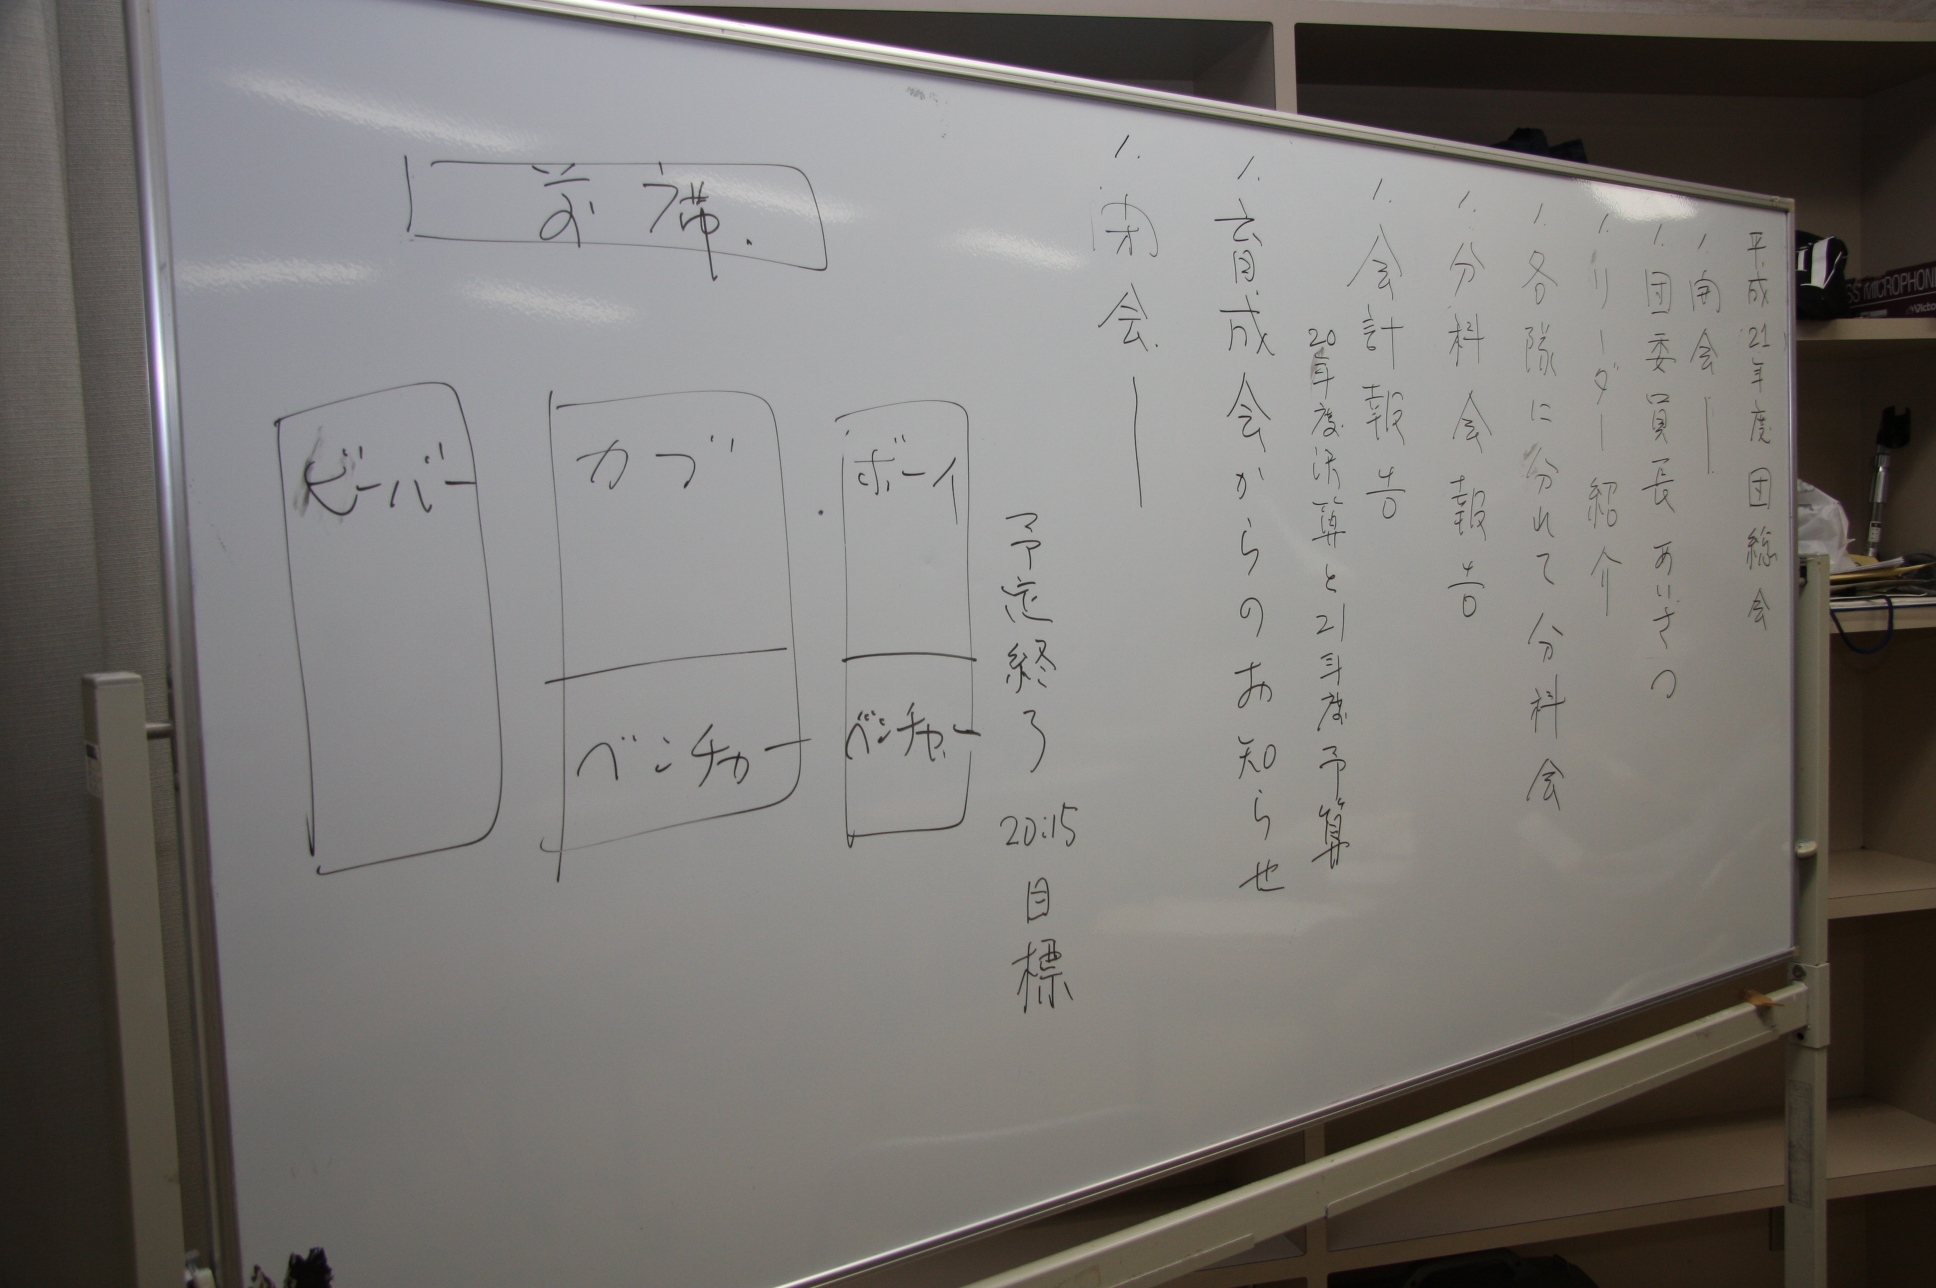 平成21年度 団総会
1. 開会 ―
1. 団委員長 あいさつ
1. リーダー紹介
1. 各隊に分れて分科会
1. 分科会報告
1. 会計報告
20年度決算と21年度予算
1. 育成会からのお知らせ
1. 閉会. ―
予定終了 20:15 目標
ボーイ
ベンチャー
カブ
ベンチャー
ビーバー
SS MICROPHON
Victo